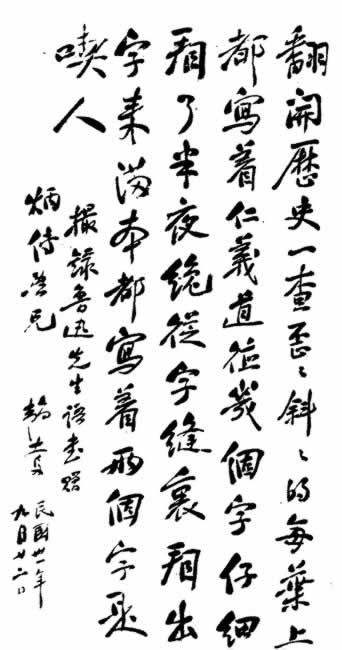 翻開歷史一查歪〻斜〻的每葉上
都寫着仁義道德幾個字仔細
看了半夜纔從字縫裏看出
字來滿本都寫着兩個字是
喫人
撮錄魯迅先生語書贈
炳兄
民國卅一年
九月廿日